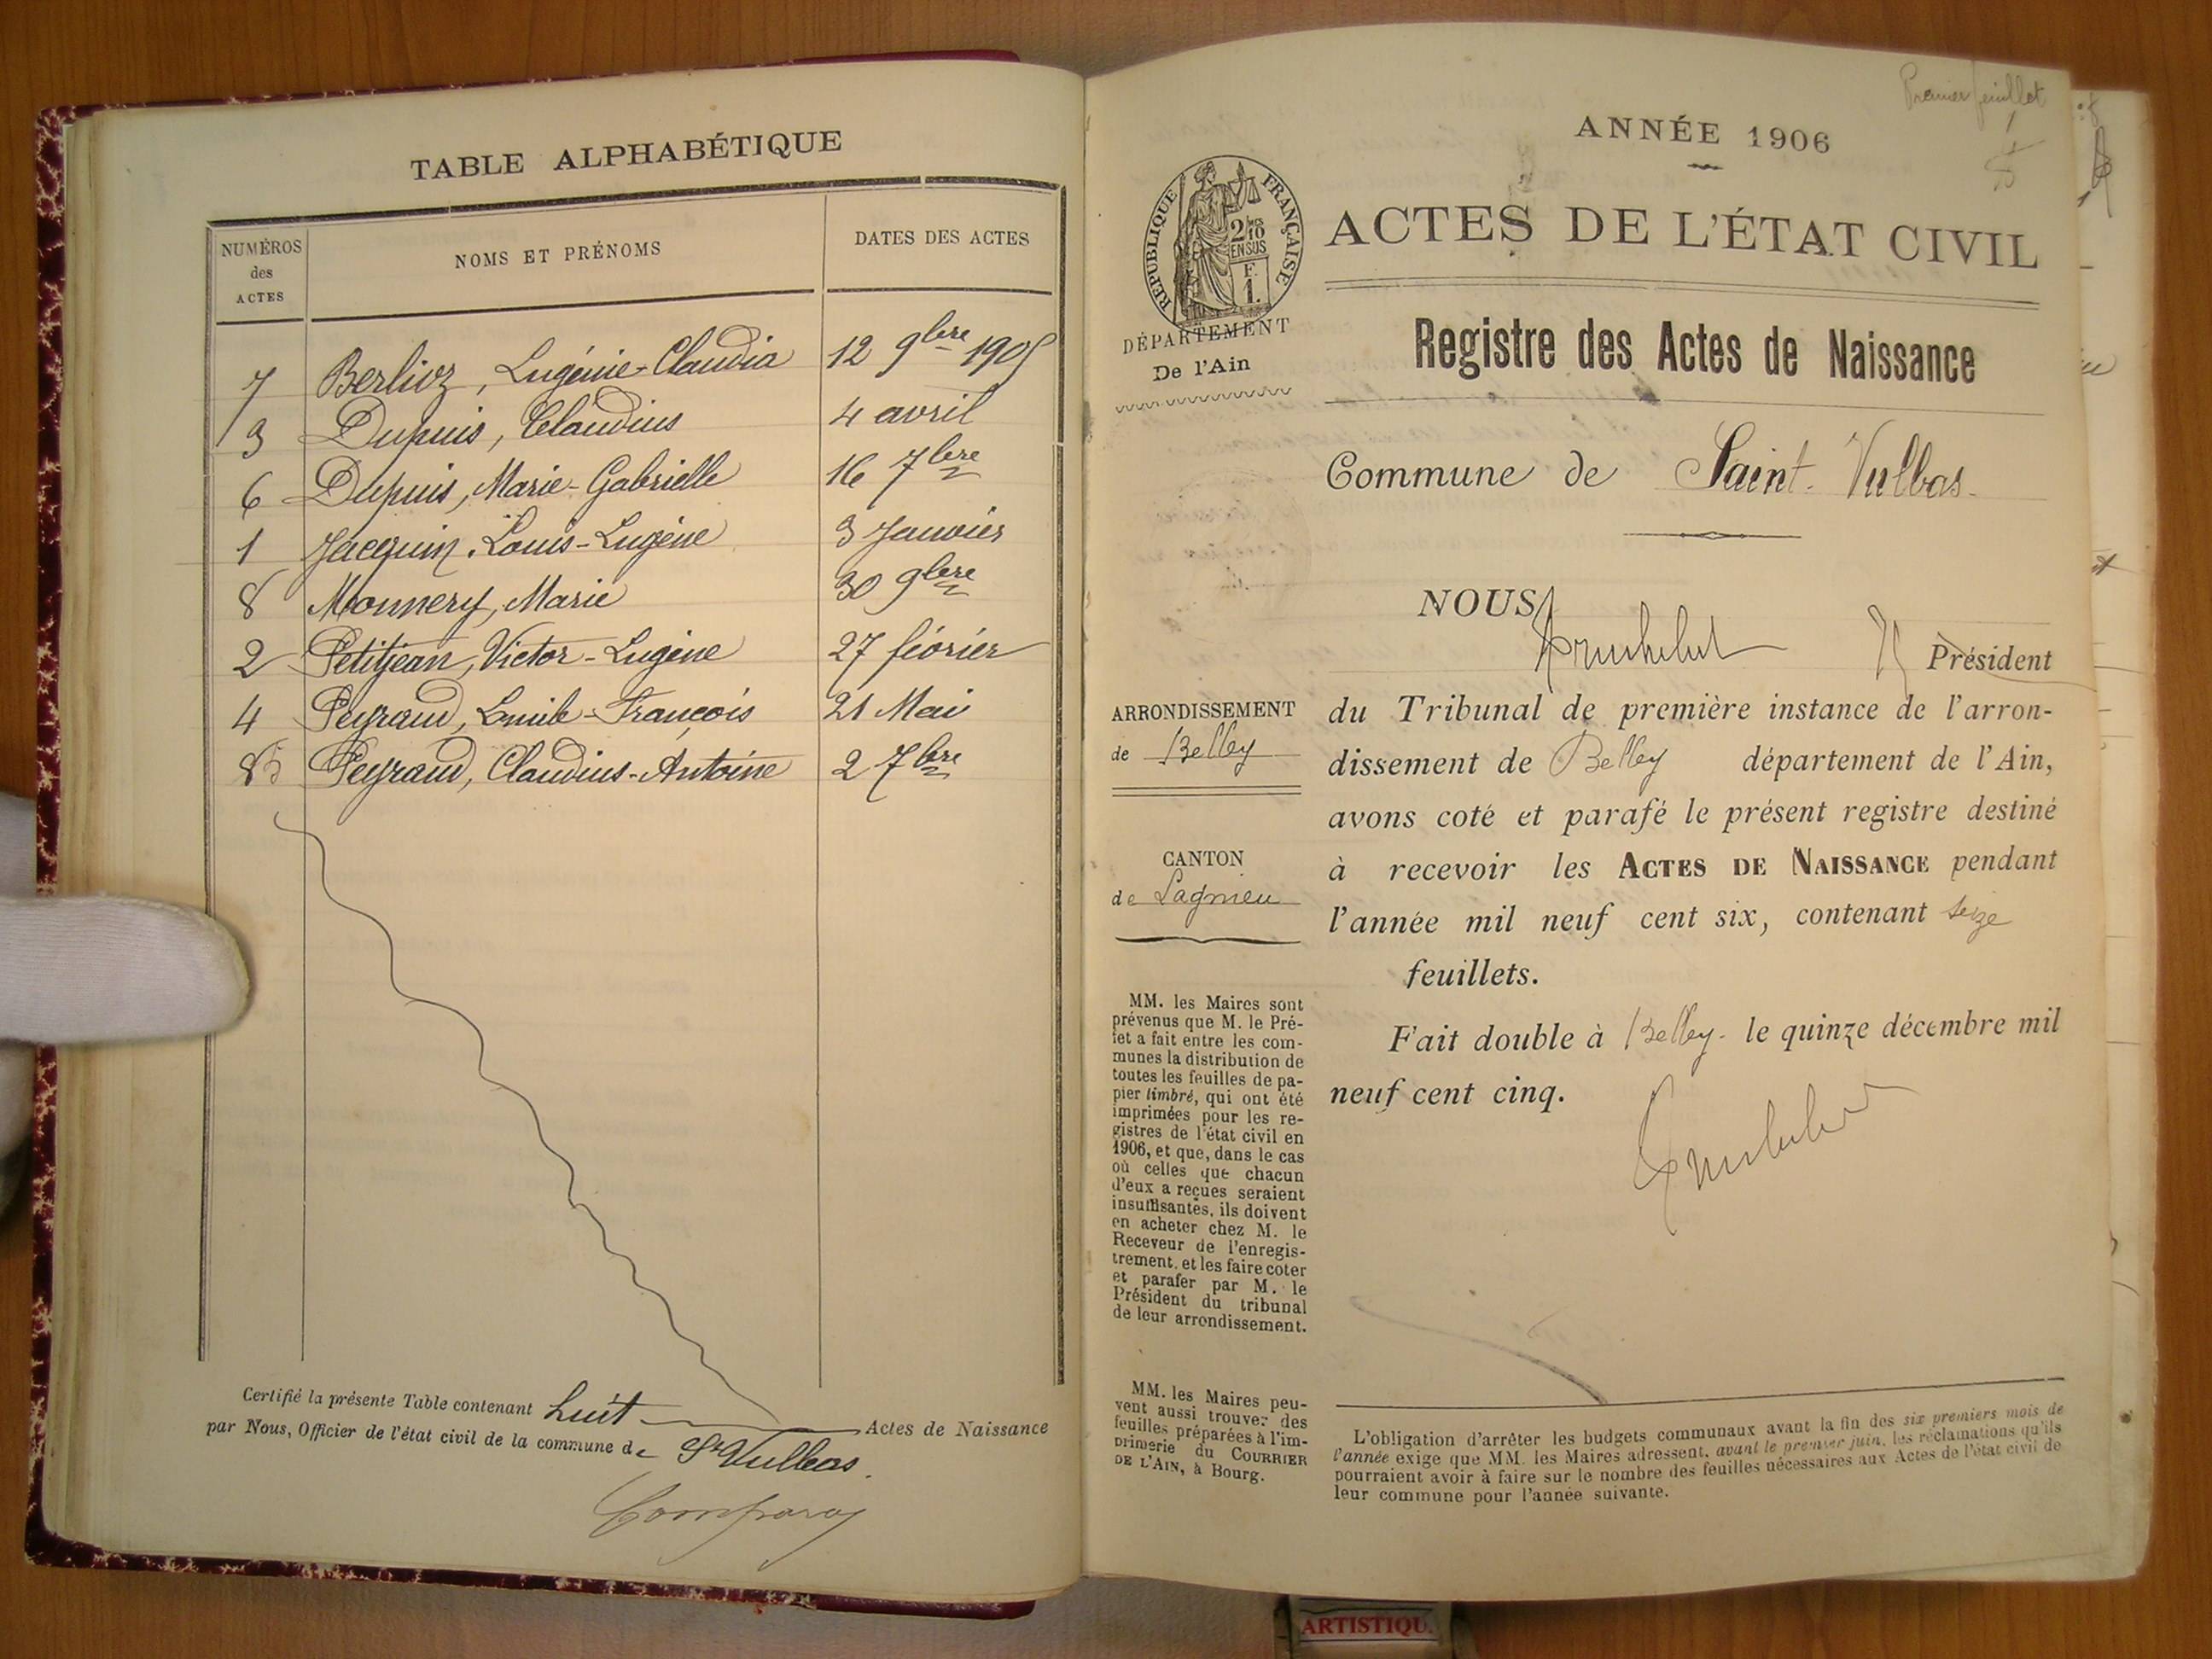 TABLE ALPHABÉTIQUE
NUMÉROS
des
ACTES
NOMS ET PRÉNOMS
DATES DES ACTES
7 Berlioz, Eugénie-Claudia 12 9bre 1905
3 Dupuis, Claudius 4 avril
6 Dupuis, Marie-Gabrielle 16 7bre
1 Jacquin, Louis-Eugène 3 Janvier
8 Monnery, Marie 30 9bre
2 Petitjean, Victor-Eugène 27 février
4 Peyraud, Emile-François 21 Mai
5 Peyraud, Claudius-Antoine 2 7bre
Certifié la présente Table contenant huit Actes de Naissance
par Nous, Officier de l'état civil de la commune de St Vulbas.
Premier feuillet
ANNÉE 1906
RÉPUBLIQUE FRANÇAISE
2/10
EN SUS
F.
1.
ACTES DE L'ÉTAT CIVIL
DÉPARTEMENT
De l'Ain
Registre des Actes de Naissance
Commune de Saint-Vulbas
NOUS
Président
du Tribunal de première instance de l'arron-
dissement de Belley département de l'Ain,
avons coté et parafé le présent registre destiné
à recevoir les ACTES DE NAISSANCE pendant
l'année mil neuf cent six, contenant seize
feuillets.
Fait double à Belley. le quinze décembre mil
neuf cent cinq.
ARRONDISSEMENT
de Belley
CANTON
de Lagnieu
MM. les Maires sont
prévenus que M. le Pré-
fet a fait entre les com-
munes la distribution de
toutes les feuilles de pa-
pier timbré, qui ont été
imprimées pour les re-
gistres de l'état civil en
1906, et que, dans le cas
où celles que chacun
d'eux a reçues seraient
insuffisantes, ils doivent
en acheter chez M. le
Receveur de l'enregis-
trement, et les faire coter
et parafer par M. le
Président du tribunal
de leur arrondissement.
MM. les Maires peu-
vent aussi trouver des
feuilles préparées à l'im-
primerie du COURRIER
DE L'AIN, à Bourg.
L'obligation d'arrêter les budgets communaux avant la fin des six premiers mois de
l'année exige que MM. les Maires adressent, avant le premier juin, les réclamations qu'ils
pourraient avoir à faire sur le nombre des feuilles nécessaires aux Actes de l'état civil de
leur commune pour l'année suivante.
ARTISTIQU